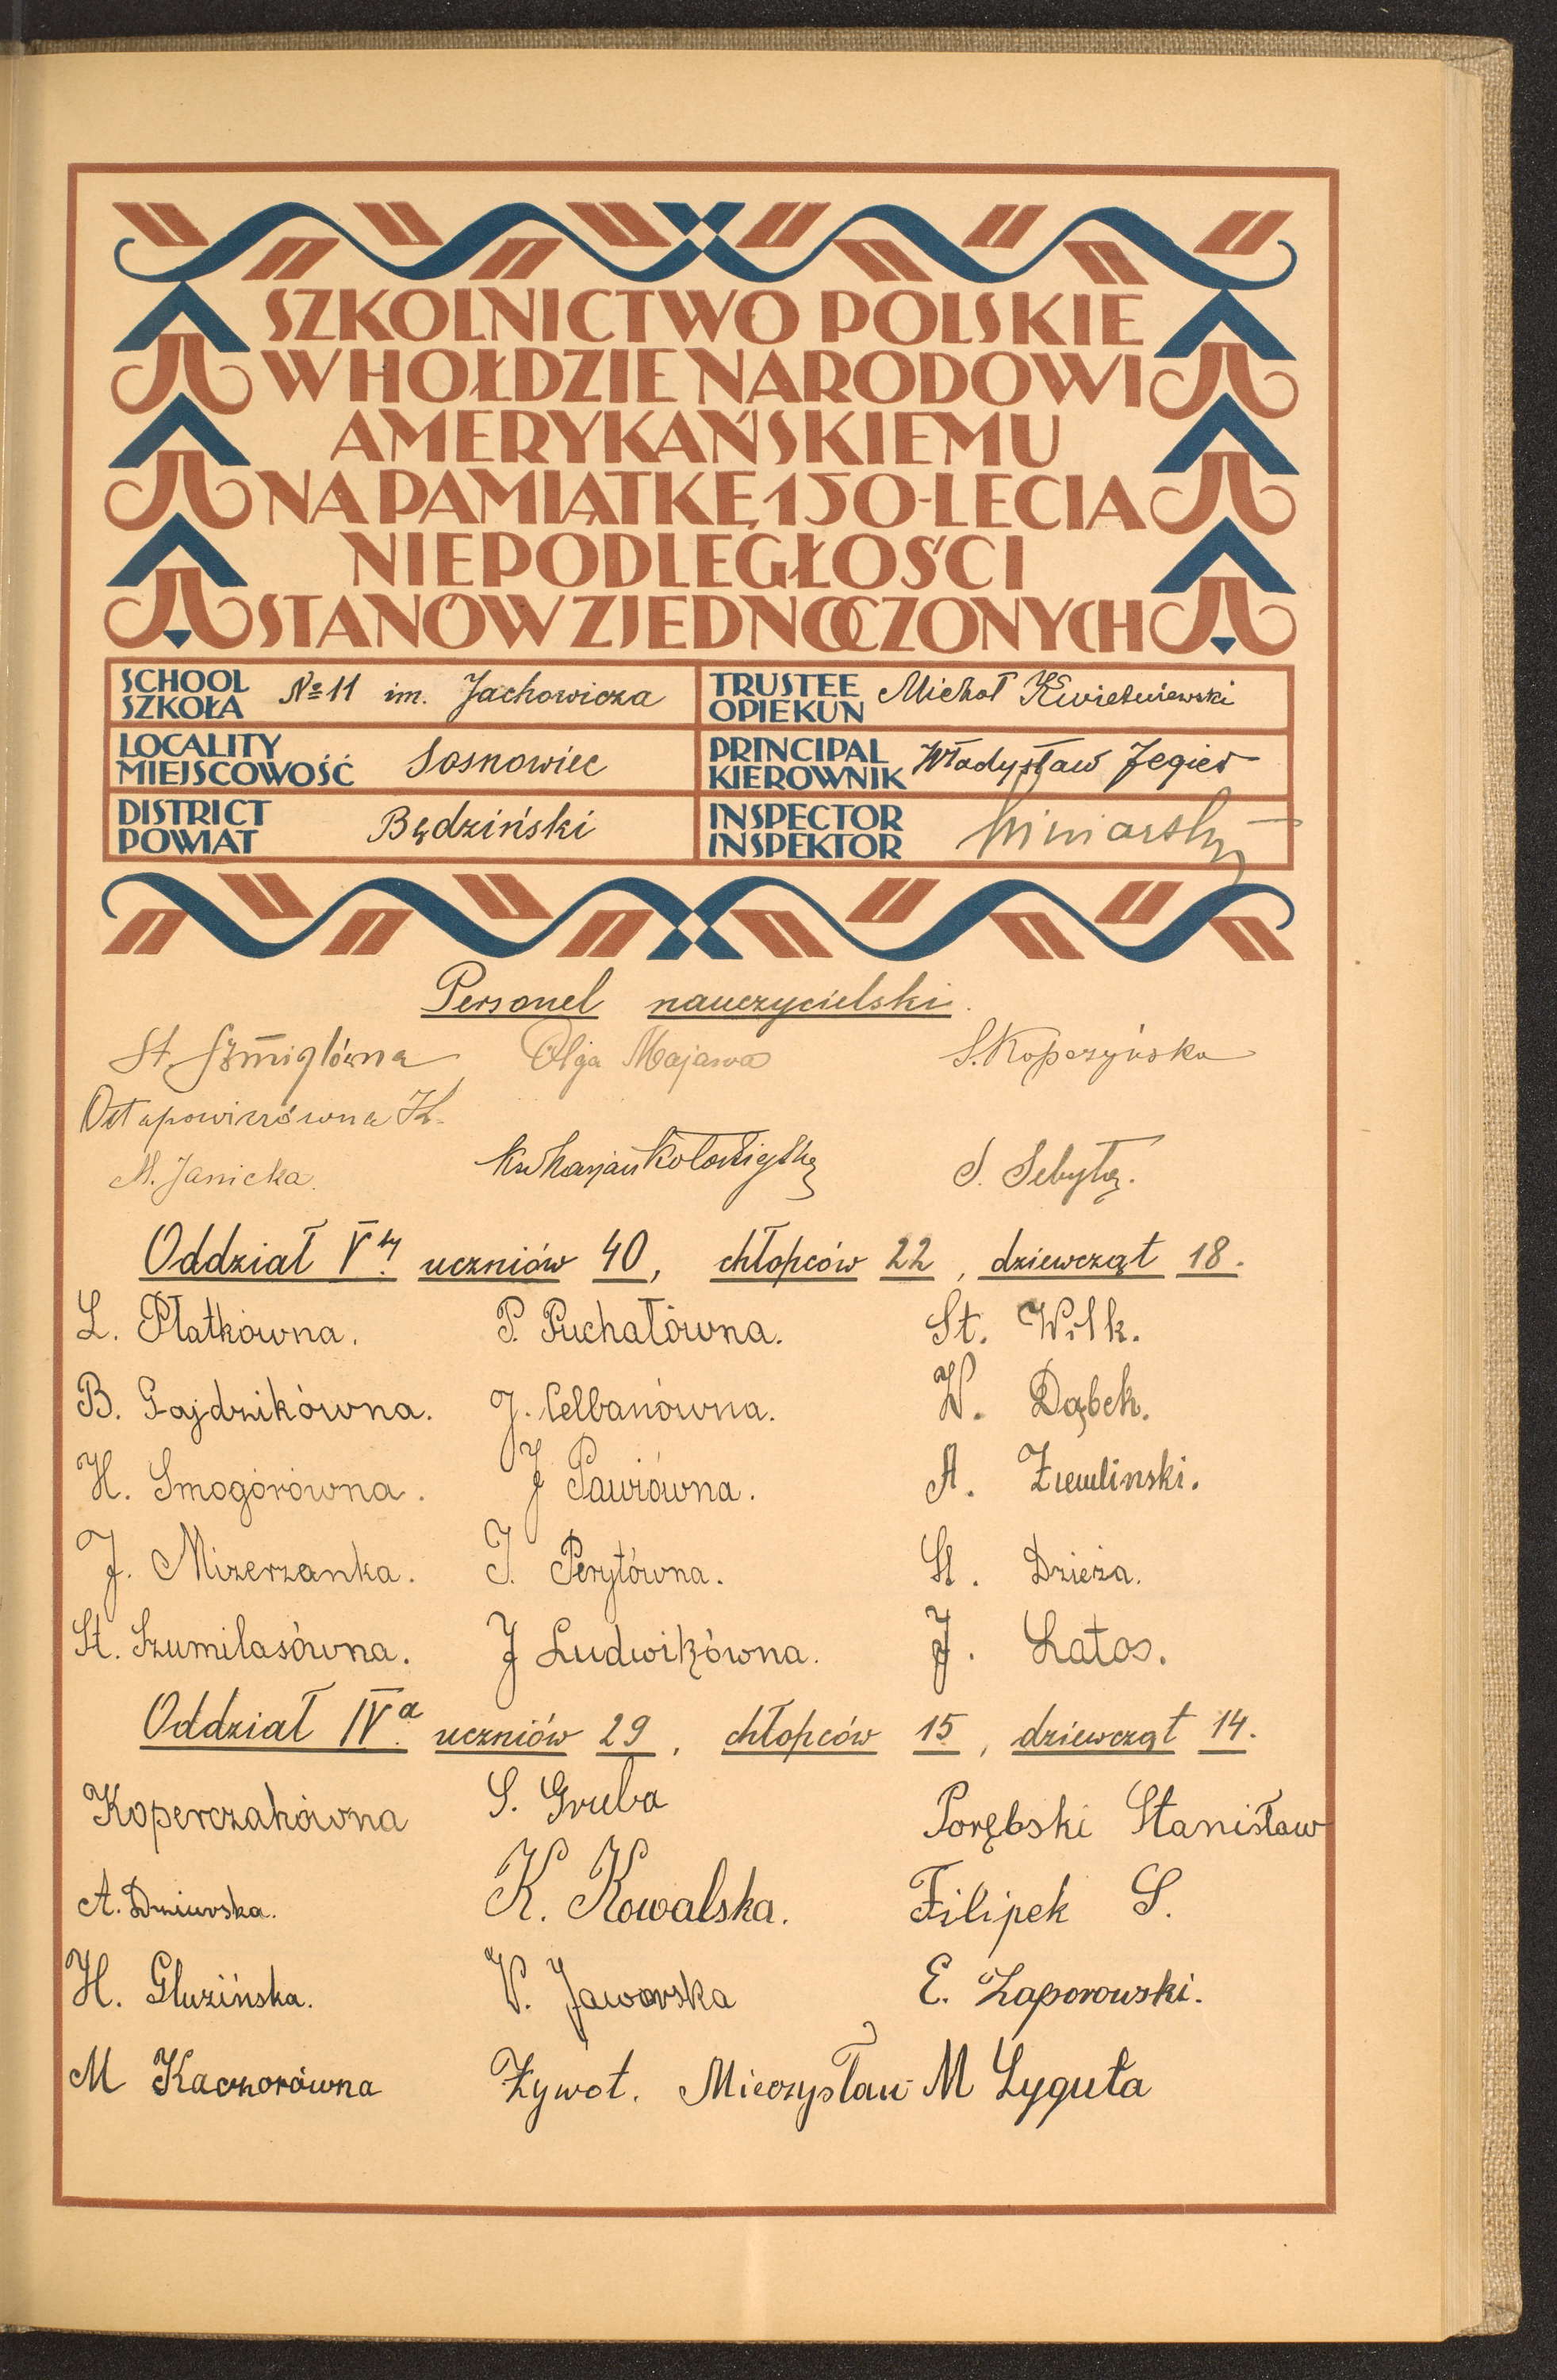 SZKOLNICTWO POLSKIE
W HOŁDZIE NARODOWI
AMERYKAŃSKIEMU
NA PAMIĄTKĘ 150-LECIA
NIEPODLEGŁOŚCI
STANÓW ZJEDNOCZONYCH
SCHOOL SZKOŁA № 11 im. Jachowicza
TRUSTEE OPIEKUN Michał Kwieśniewski
LOCALITY MIEJSCOWOŚĆ Sosnowiec
PRINCIPAL KIEROWNIK Władysław Jegier
DISTRICT POWIAT Będziński
INSPECTOR INSPEKTOR
Personel nauczycielski.
St. Szmiglówna Olga Majowa S. Kopczyńska
Ostapowiczówna H.
M. Janicka. S. Sebyła.
Oddział V ty uczniów 40, chłopców 22, dziewcząt 18.
L. Płatkówna. P. Puchałówna. St. Wilk.
B. Gajdzikówna. J. Celbanówna. W. Dąbek.
H. Smogórówna. J Pawiówna. A. Ziemlinski.
J. Mizerzanka. J. Perytówna. St. Dzieża.
St. Szumilasówna. J Ludwikówna. J. Latos.
Oddział IV a uczniów 29, chłopców 15, dziewcząt 14.
Koperczakówna S. Gruba Porębski Stanisław
A. Dziurska. K. Kowalska. Filipek S.
H. Gluzińska. W. Jaworska E. Zaporowski.
M Kaczorówna Żywot. Mieczysław M Łyguła